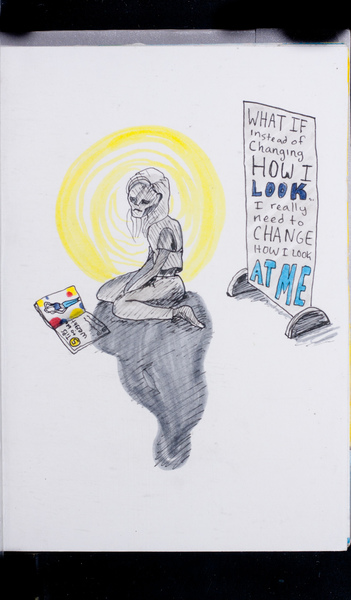 WHAT IF
instead of
Changing
HOW I
LOOK..
I really
need to
CHANGE
HOW I LOOK
AT ME